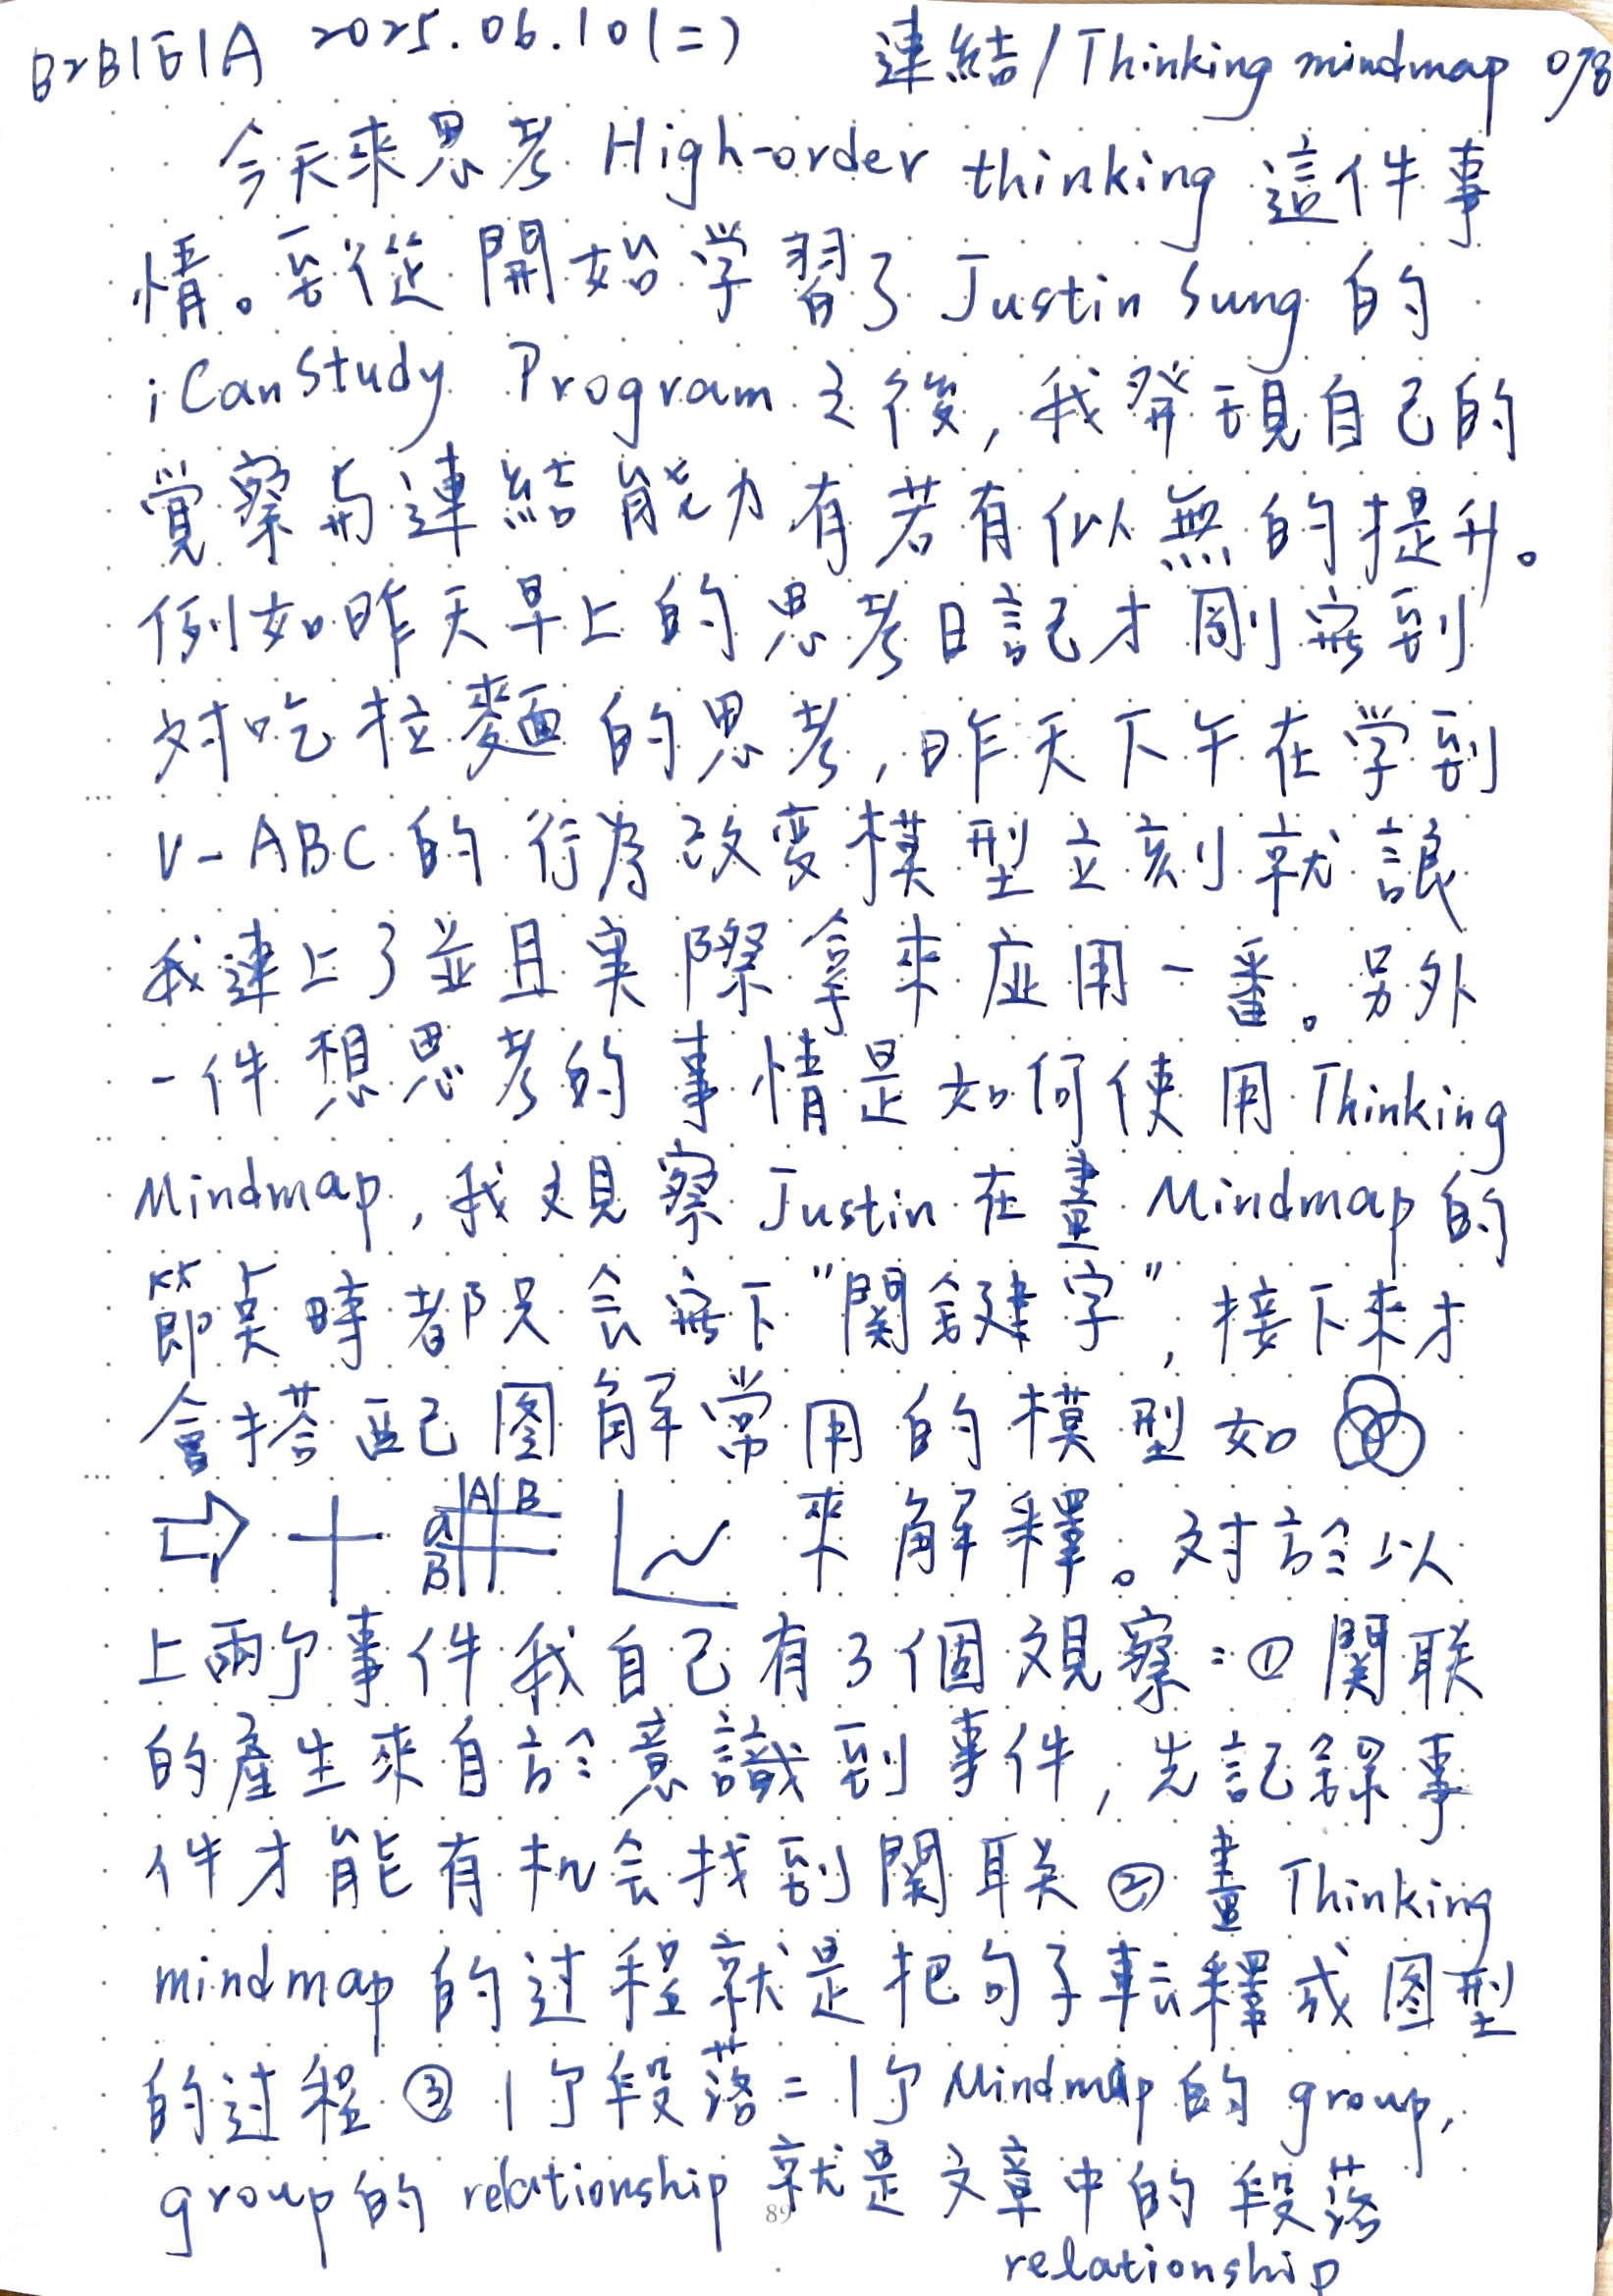 B2B1E1A 2025.06.10(二) 連結/Thinking mindmap 078
今天來思考 High-order thinking 這件事
情。至從開始学習了 Justin Sung 的
iCanStudy Program 之後, 我發現自己的
覚察与連結能力有若有似無的提升。
例如昨天早上的思考日記才剛寫到
对吃拉麵的思考, 昨天下午在学到
V-ABC 的行為改変模型立刻就讓
我連上了並且実際拿來应用一番。另外
一件想思考的事情是如何使用 Thinking
Mindmap, 我观察 Justin 在畫 Mindmap 的
節点時都只会寫下"関鍵字", 接下來才
會搭配图解常用的模型如
A B
a
B
來解釋。对於以
上兩个事件我自己有3個观察:① 関联
的產生來自於意識到事件, 先記錄事
件才能有机会找到関联 ② 畫 Thinking
mindmap 的过程就是把句子転釋成图型
的过程 ③ 1个段落=1个Mindmap的 group,
group的 relationship 就是文章中的段落
relationship
89